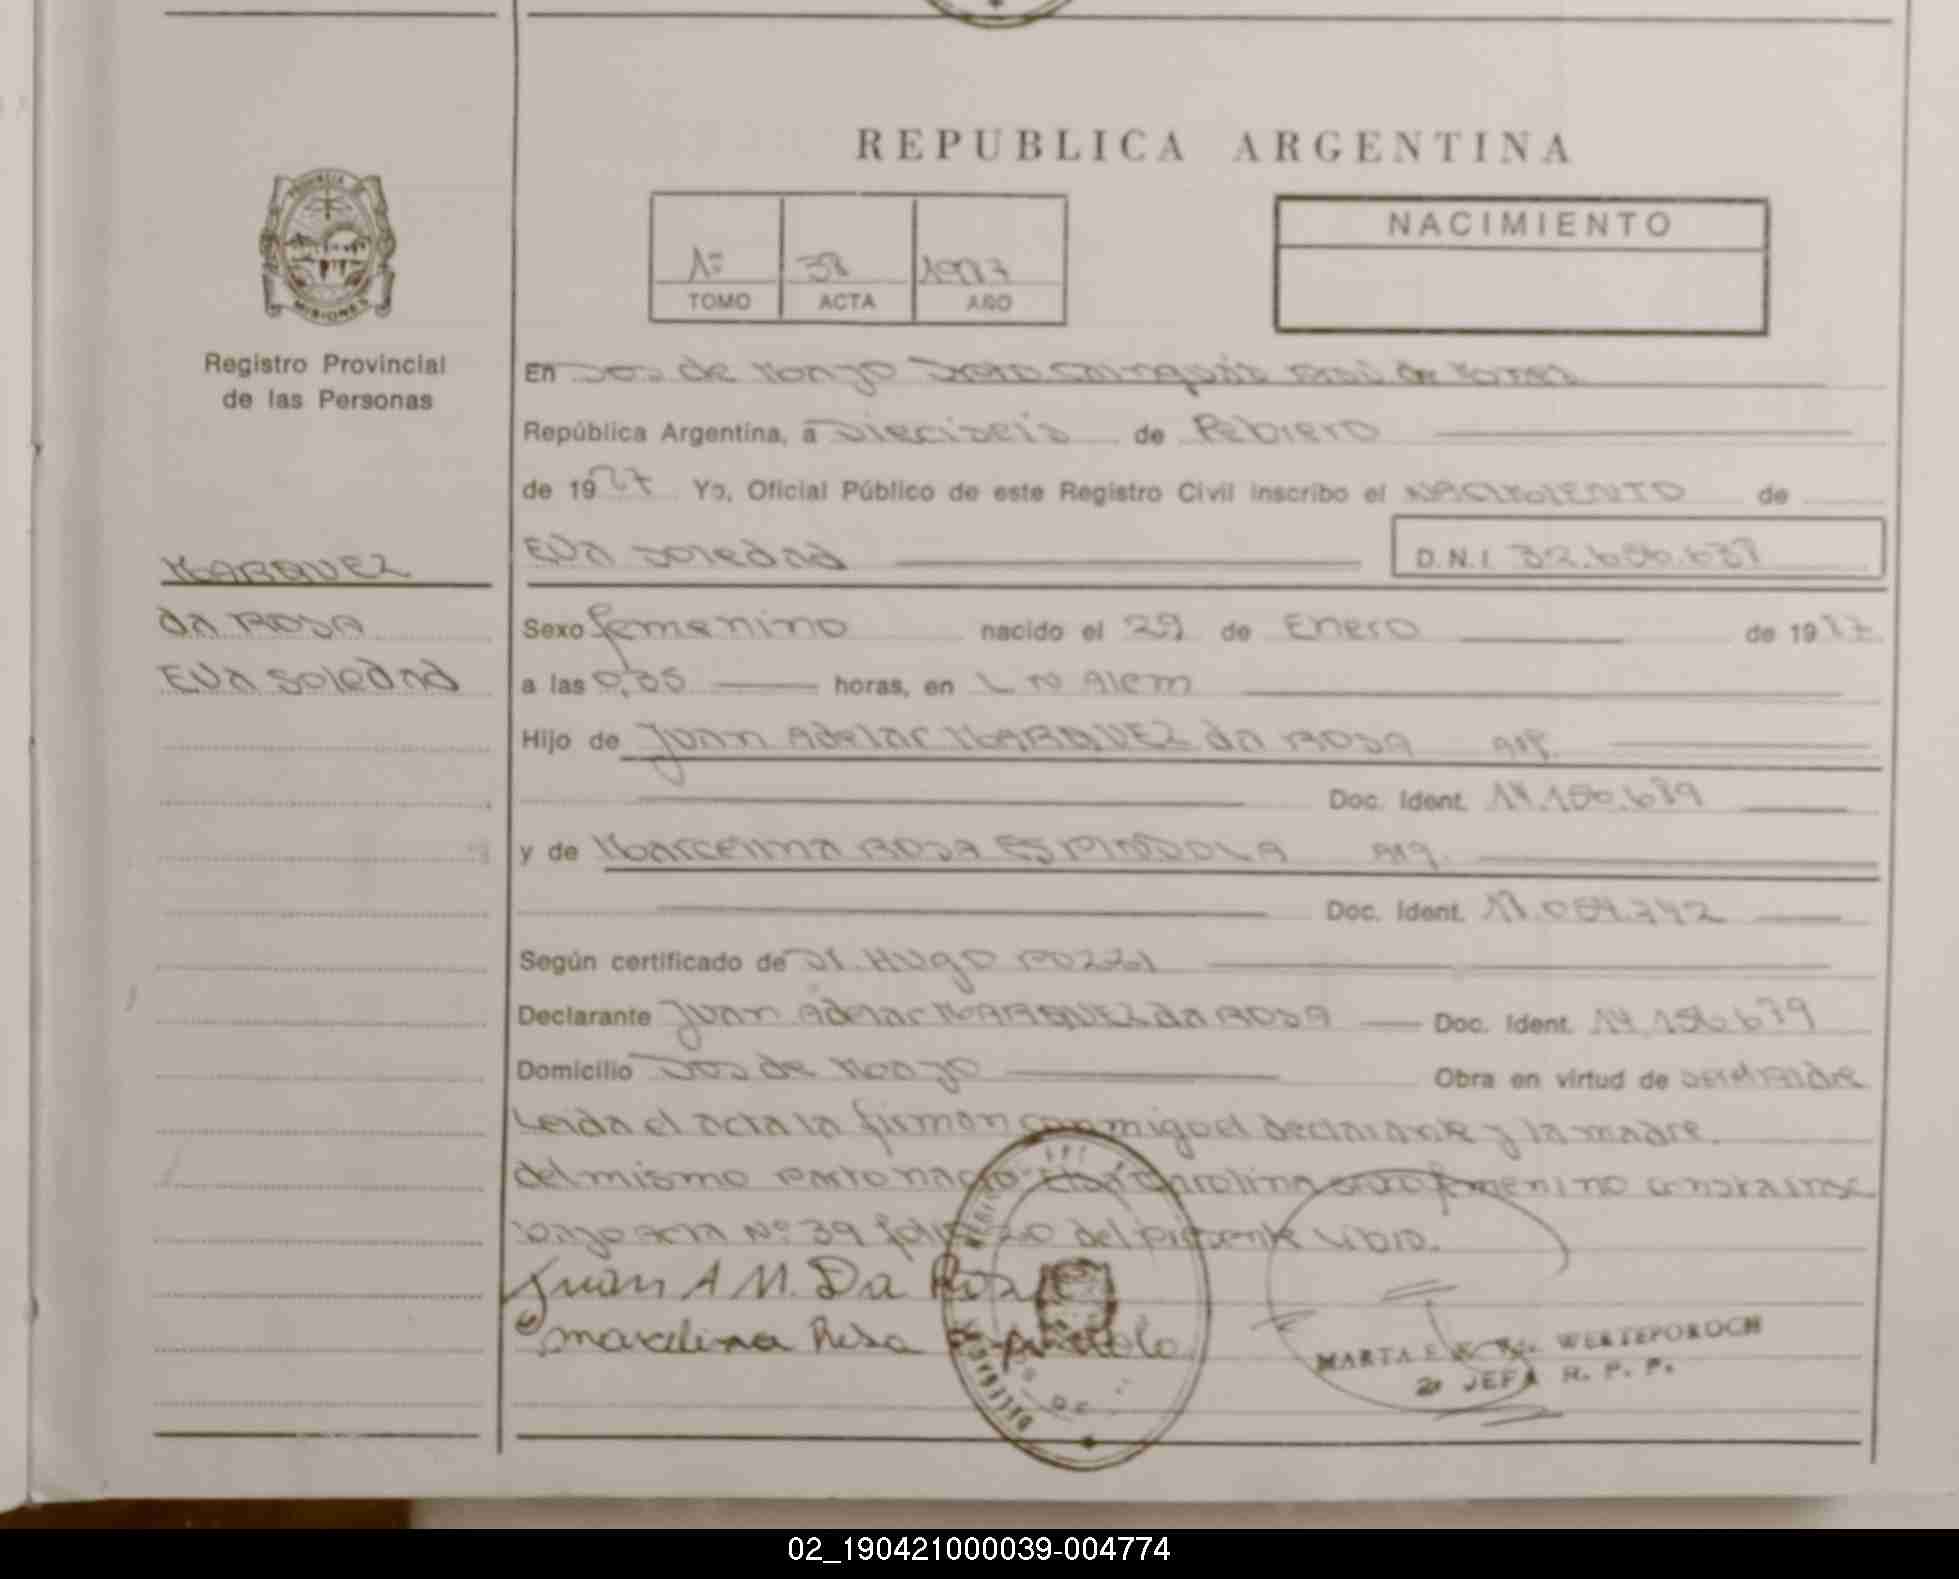 REPUBLICA ARGENTINA
PROVINCIA DE
MISIONES
Registro Provincial
de las Personas
1º 38 1987
TOMO ACTA AÑO
NACIMIENTO
En Dos de Mayo Dpto Cainguás
República Argentina, a Dieciseis de Febrero
de 1987 Yo, Oficial Público de este Registro Civil inscribo el NACIMIENTO de
MARQUEZ
da ROSA
EVA SOledad
EVA SOledad D.N.I. 32.656.637
Sexo femenino nacido el 29 de Enero de 1987
a las 0,05 horas, en L N Alem
Hijo de Juan Adelar MARQUEZ da ROSA arg.
Doc. Ident. 14.156.679
y de Marcelina ROSA ESPINDOLA arg.
Doc. Ident. 17.054.742
Según certificado de Dr. HUGO POZZI
Declarante Juan Adelar MARQUEZ da ROSA Doc. Ident. 14.156.679
Domicilio Dos de Mayo Obra en virtud de ser el Padre
Leida el acta la firman conmigo el declarante y la madre.
del mismo parto nació Carolina sexo femenino
bajo acta Nº 39 folio 20 del presente Libro.
Juan A M. Da Rosa
Marcelina Rosa Espindola
MARTA E. WERTEPOROCH
JEFA R. P. P.
02_190421000039-004774